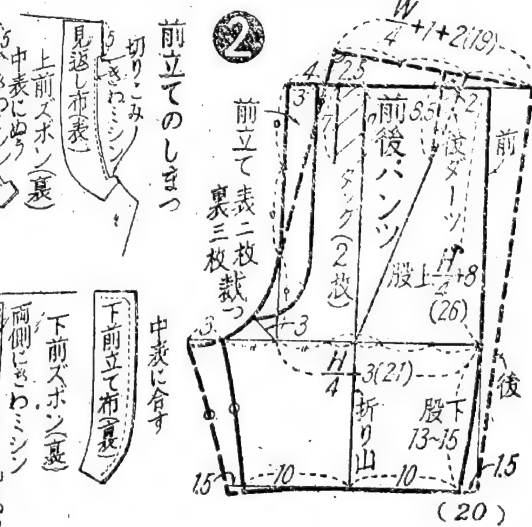 ❷
W/4+1+2(19)
4
2.5
3
7
8.5
2
前
後ダーツ
前後・パンツ
タック(2枚)
前立て 表二枚
裏三枚 裁つ
股上H/4+8
(26)
3
3
H/4
3(21)
折り山
股下
13~15
後
1.5
10
10
1.5
(20)
前立てのしまつ
切りこみ
きわミシン
見返し布(表)
上前ズボン(裏)
中表にぬう
中表に合す
下前立て布(裏)
下前ズボン(裏)
両側にきわミシン